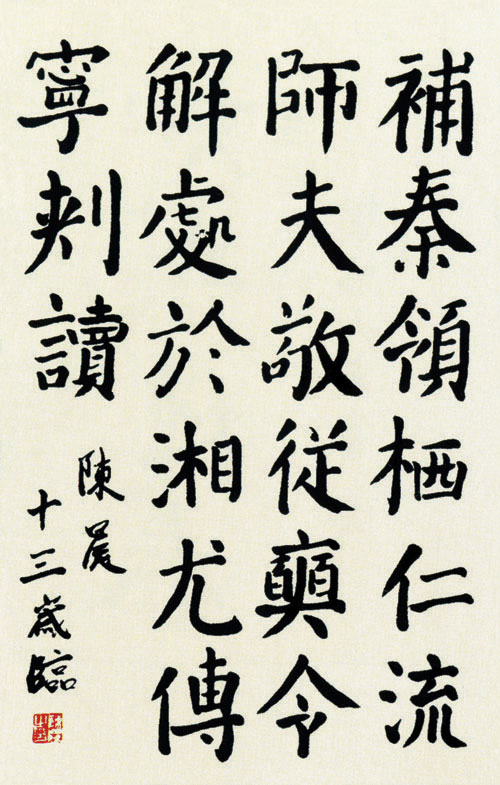 補秦領栖仁流
師夫敬従令
解處於湘尤傳
寧刾讀
陳晨
十三歲臨